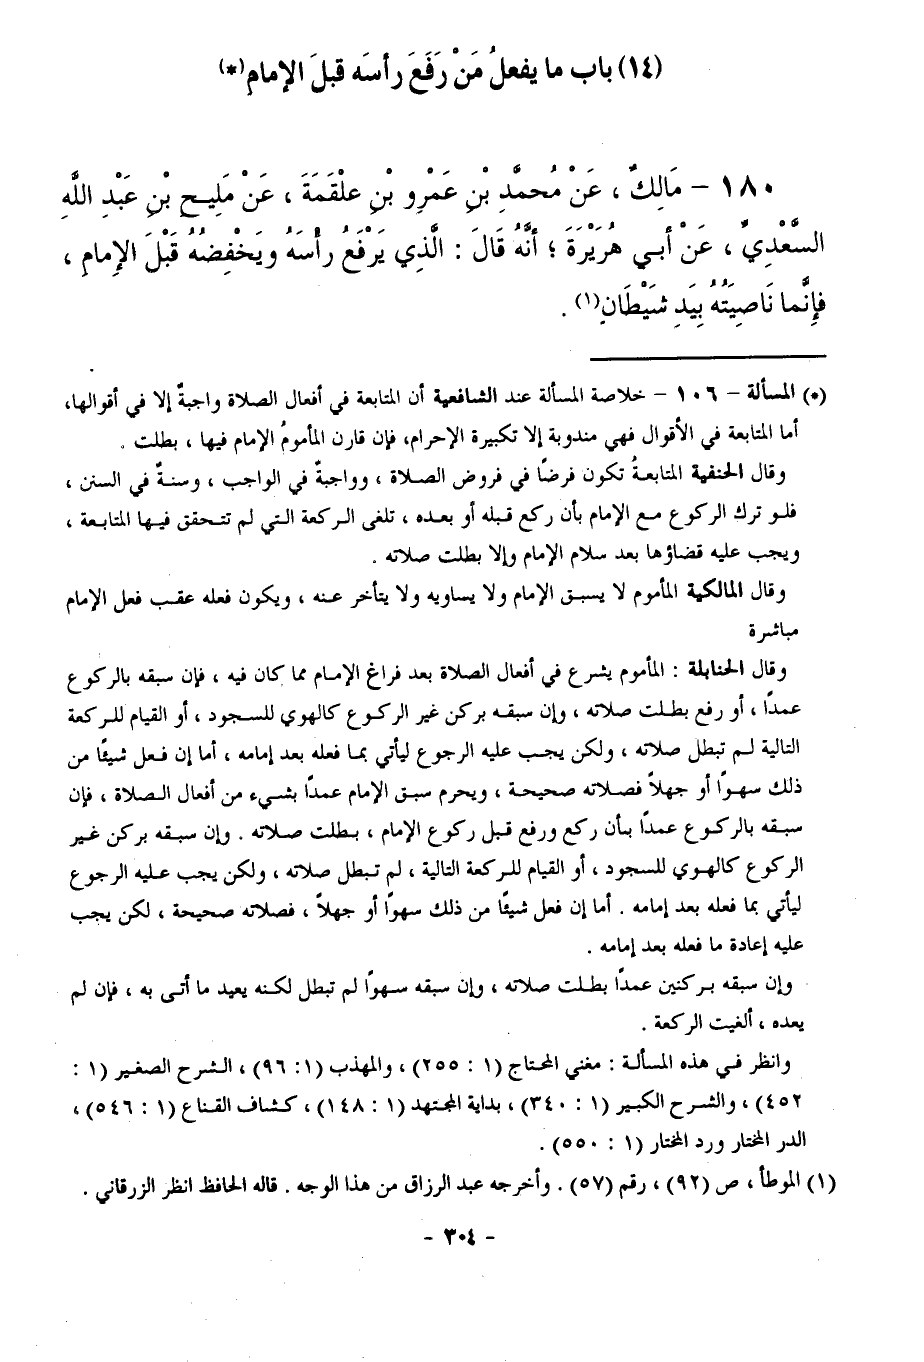 (١٤) باب ما يفعلُ مَنْ رَفَعَ رأسَه قبلَ الإمام(*)
١٨٠ – مَالِكٌ ، عَنْ مُحمَّدِ بْنِ عَمْرِو بْنِ علْقَمَةَ ، عَنْ مَلِيحِ بْنِ عَبْدِ اللَّهِ
السَّعْدِيِّ ، عَنْ أبي هُرَيْرَةَ ؛ أنَّهُ قَالَ : الَّذِي يَرْفَعُ رأْسَهُ ويَخْفِضُهُ قَبْلَ الإِمامِ ،
فإِنَّما نَاصِيَتُهُ بِيَدِ شَيْطَانٍ(١) .
(*) المسألة – ١٠٦ – خلاصة المسألة عند الشافعية أن المتابعة في أفعال الصلاة واجبةٌ إلا في أقوالها،
أما المتابعة في الأقوال فهي مندوبة إلا تكبيرة الإحرام، فإن قارن المأمومُ الإمام فيها ، بطلت .
وقال الحنفية المتابعةُ تكون فرضًا في فروض الصلاة ، وواجبةٌ في الواجب ، وسنةٌ في السنن ،
فلو ترك الركوع مع الإمام بأن ركع قبله أو بعده ، تلغى الركعة التي لم تتحقق فيها المتابعة ،
ويجب عليه قضاؤها بعد سلام الإمام وإلا بطلت صلاته .
وقال المالكية المأموم لا يسبق الإمام ولا يساويه ولا يتأخر عنه ، ويكون فعله عقب فعل الإمام
مباشرة
وقال الحنابلة : المأموم يشرع في أفعال الصلاة بعد فراغ الإمام مما كان فيه ، فإن سبقه بالركوع
عمدًا ، أو رفع بطلت صلاته ، وإن سبقه بركن غير الركوع كالهوي للسجود ، أو القيام للركعة
التالية لم تبطل صلاته ، ولكن يجب عليه الرجوع ليأتي بما فعله بعد إمامه ، أما إن فعل شيئًا من
ذلك سهوًا أو جهلاً فصلاته صحيحة ، ويحرم سبق الإمام عمدًا بشيء من أفعال الصلاة ، فإن
سبقه بالركوع عمدًا بأن ركع ورفع قبل ركوع الإمام ، بطلت صلاته . وإن سبقه بركن غير
الركوع كالهوي للسجود ، أو القيام للركعة التالية ، لم تبطل صلاته ، ولكن يجب عليه الرجوع
ليأتي بما فعله بعد إمامه . أما إن فعل شيئًا من ذلك سهوًا أو جهلاً ، فصلاته صحيحة ، لكن يجب
عليه إعادة ما فعله بعد إمامه .
وإن سبقه بركنين عمدًا بطلت صلاته ، وإن سبقه سهوًا لم تبطل لكنه يعيد ما أتى به ، فإن لم
يعده ، ألغيت الركعة .
وانظر في هذه المسألة : مغني المحتاج (١ : ٢٥٥) ، والمهذب (١: ٩٦) ، الشرح الصغير (١ :
٤٥٢) ، والشرح الكبير (١ : ٣٤٠) ، بداية المجتهد (١ : ١٤٨) ، كشاف القناع (١ : ٥٤٦) ،
الدر المختار ورد المختار (١ : ٥٥٠) .
(١) الموطأ ، ص (٩٢) ، رقم (٥٧) . وأخرجه عبد الرزاق من هذا الوجه . قاله الحافظ انظر الزرقاني .
- ٣٠٤ -